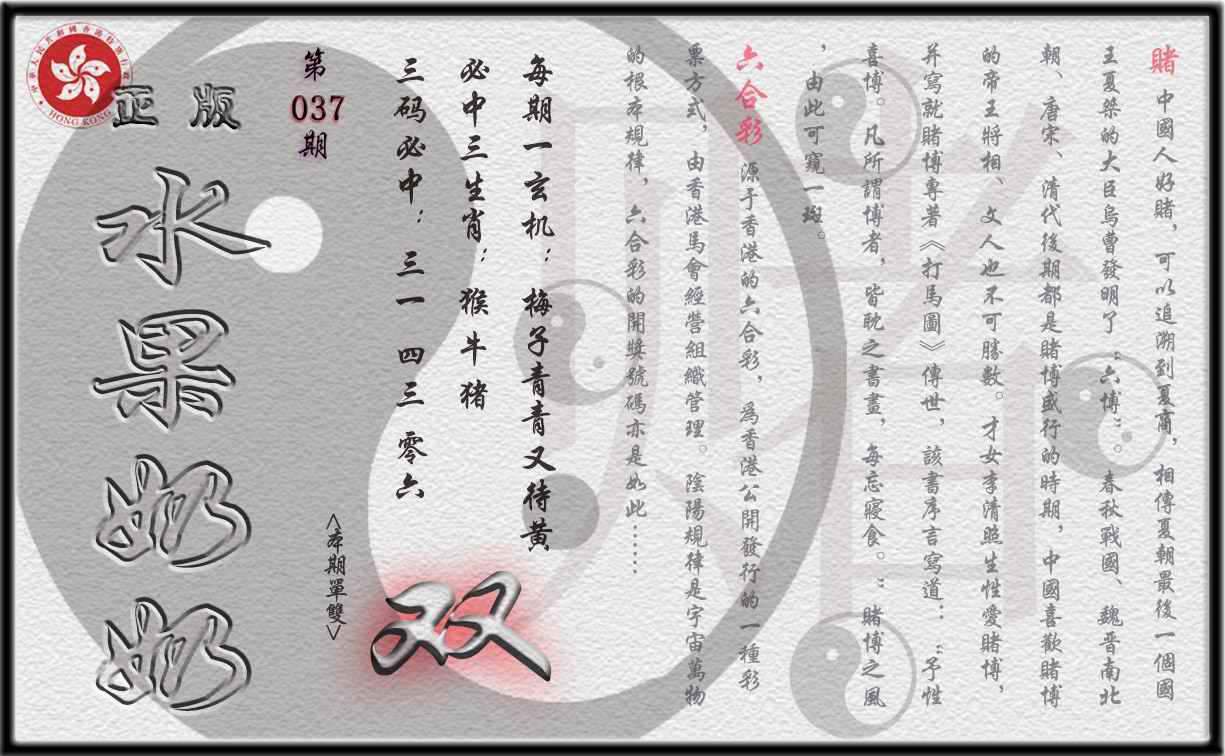 賭 中國人好賭，可以追溯到夏商，相傳夏朝最後一個國
王夏桀的大臣烏曹發明了“六博”。春秋戰國、魏晋南北
朝、唐宋、清代後期都是賭博盛行的時期，中國喜歡賭博
的帝王將相、文人也不可勝數。才女李清照生性愛賭博，
并寫就賭博專著《打馬圖》傳世，該書序言寫道：“予性
喜博。凡所謂博者，皆耽之書晝，每忘寢食。”賭博之風
，由此可窺一斑。
六合彩 源于香港的六合彩，爲香港公開發行的一種彩
票方式，由香港馬會經營組織管理。陰陽規律是宇宙萬物
的根本規律，六合彩的開獎號碼亦是如此……
每期一玄机：梅子青青又待黄
必中三生肖：猴牛猪
三码必中：三一 四三 零六
<本期單雙>
双
第
037
期
正版
水果奶奶
中華人民共和國香港特別行政區
HONG KONG
賭